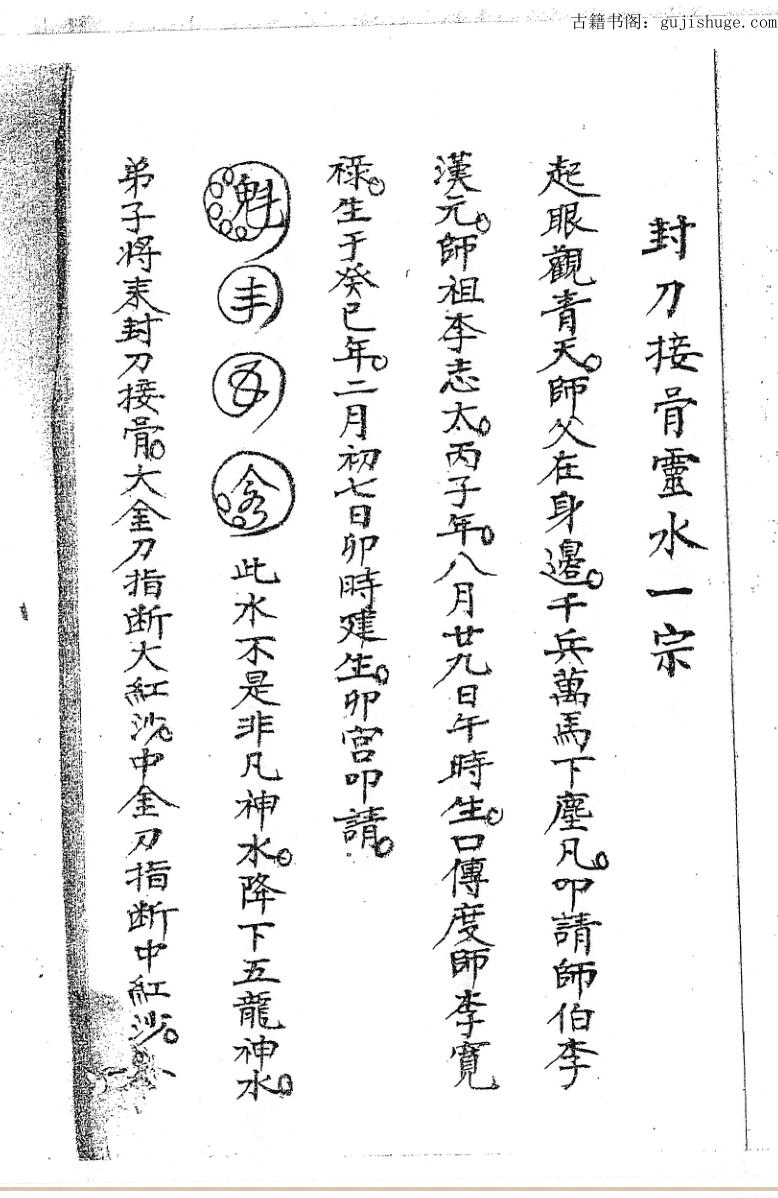 古籍书阁：gujishuge.com
封刀接骨靈水一宗
起眼觀青天。師父在身邊。千兵萬馬下塵凡。叩請師伯李
漢元。師祖李志太。丙子年。八月廿九日午時生。口傳度師李寬
祿。生于癸巳年。二月初七日卯時建生。卯宫叩請。
魁 此水不是非凡神水。降下五龍神水。
弟子將来封刀接骨。大金刀指断大紅沙。中金刀指断中紅沙。